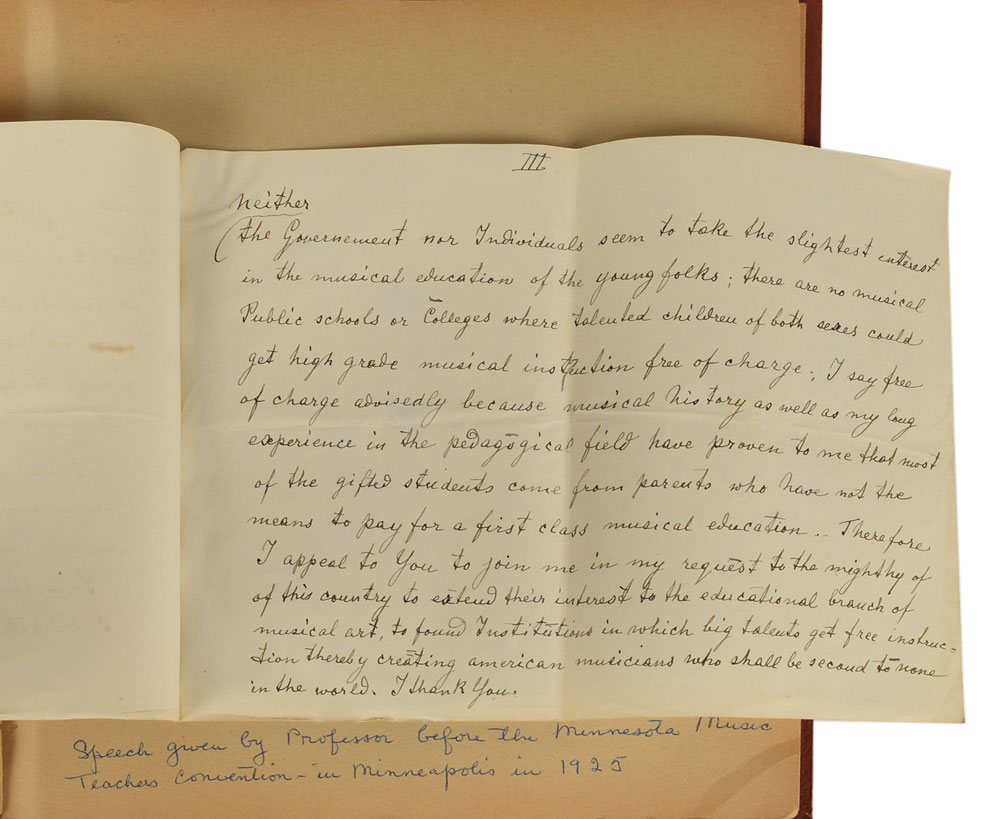 III
neither
the Governement nor Individuals seem to take the slightest interest
in the musical education of the young folks; there are no musical
Public schools or Colleges where talented children of both sexes could
get high grade musical instruction free of charge; I say free
of charge advisedly because musical history as well as my long
experience in the pedagogical field have proven to me that most
of the gifted students come from parents who have not the
means to pay for a first class musical education. - Therefore
I appeal to You to join me in my request to the mighthy of
of this country to extend their interest to the educational branch of
musical art, to found Institutions in which big talents get free instruc=
tion thereby creating american musicians who shall be second to none
in the world. I thank You.
Speech given by Professor before the Minnesota Music
Teachers Convention - in Minneapolis in 1925